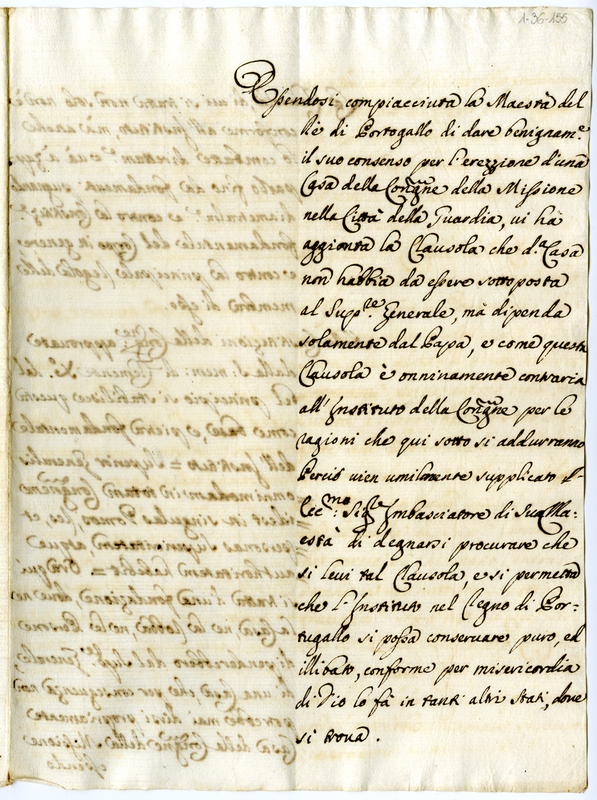 1-36-155
Essendosi compiacciuta la Maestà del
Rè di Portogallo di dare benignam.e
il suo consenso per l'erezzione d'una
Casa della Congne della Missione
nella Città della Guardia, vi hà
aggionta la Clausola che d.a Casa
non habbia da essere sottoposta
al Sup.re Generale, mà dipenda
solamente dal Papa, e come questa
Clausola è onninamente contraria
all'Instituto della Congne per le
ragioni che qui sotto si addurranno
Perciò vien umilmente supplicato l'
Ecc.mo Sig.re Imbasciatore di Sua Ma:
està di degnarsi procurare che
si levi tal Clausola, e si permetta
che l'Instituto nel Regno di Por-
tugallo si possa conservare puro, ed
illibato, conforme per misericordia
di Dio lo fà in tanti altri stati, dove
si trova.